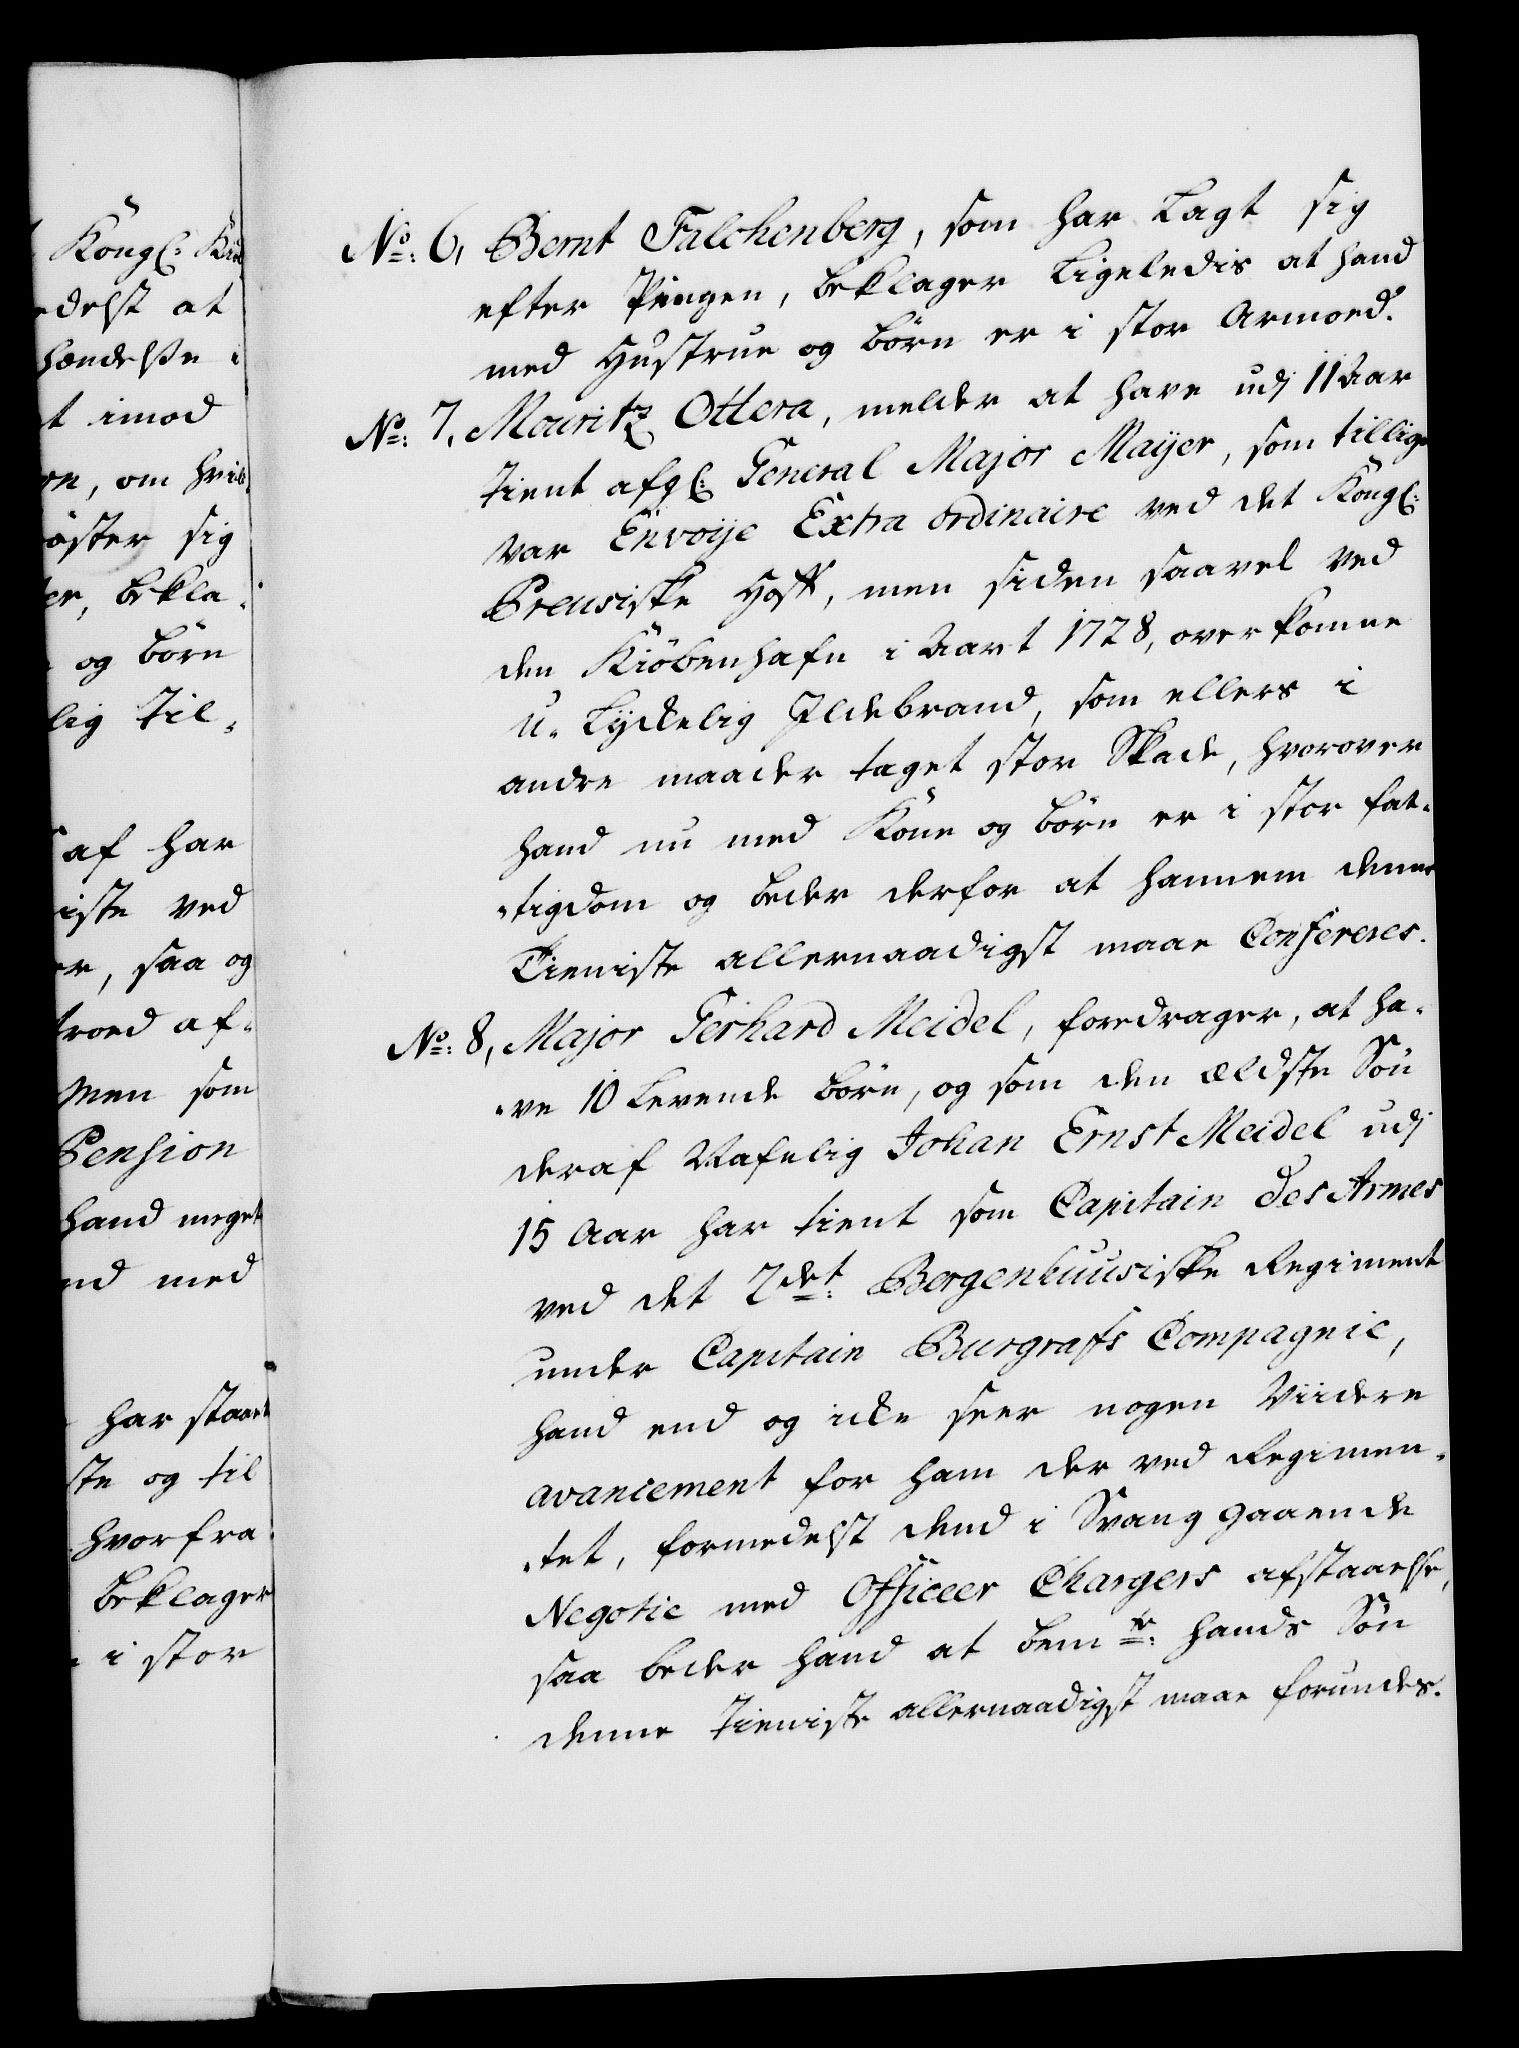 Kongl: Kri
edelst at
hændelse i
t imod
en, om hvil
øster sig
er, bekla-
og børn
lig til-
af har
iste ved
er, saa og
troed af-
men som
Pension
hand meget
nd med
har staaet
ste og til
hvorfra
beklager
i stor
No: 6, Bernt Falchenberg, som har lagt sig
efter Pungen, beklager ligeledis at hand
med Hustrue og børn er i stor armoed.
No: 7, Mouritz Ottera, melder at have udj 11 Aar
tient afgl: General Major Maijer, som tillige
var Envoije Extra ordinaire ved det Kongl:
Preusiske Hoff, men siden saavel ved
den Kiöbenhafn i Aaret 1728, overkomne
u-lyckelig Ildebrand, som ellers i
andre maader taget stor Skade, hvorover
hand nu med Kone og børn er i stor fat-
-tigdom og beder derfor at hannem denne
Tieniste allernaadigst maae Confereres.
No: 8, Major Gerhard Meidel, foredrager, at ha-
-ve 10 levende børn, og som den ældste Søn
deraf Nafnlig Johan Ernst Meidel udj
15 Aar har tient som Capitain des Armes
ved det 2det: Bergenhuusiske Regiment
under Capitain Burgrafs Compagnie,
hand end og icke seer nogen Viidere
avancement for ham der ved Regimen-
-tet, formedelst dend i Svang gaaende
Negotie med Officeer Chargers afstaaelse,
saa beder hand at bemte: hands Søn
denne Tieniste allernaadigst maae forundes.